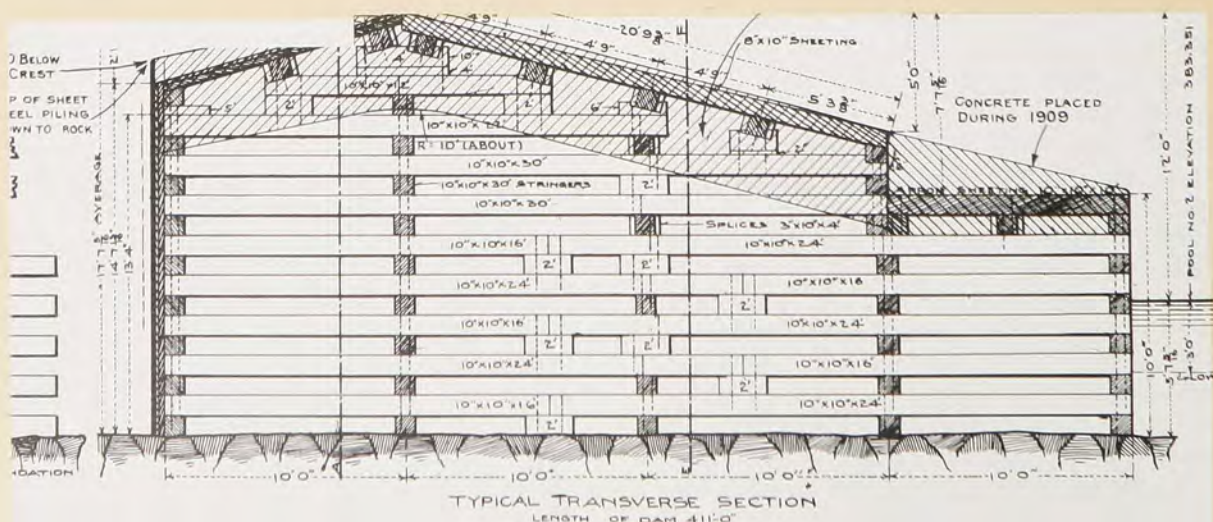 BELOW
CREST
P OF SHEET
EEL PILING
WN TO ROCK
17'7
OVERAGE
14'7
13'4"
4'9"
20'9
4'9"
4'9"
5'3
8"X10" SHEETING
5'0"
CONCRETE PLACED
DURING 1909
12'0"
POOL NO 2 ELEVATION 383.351
10"
4"
4"
5"
2'
10"X10"X12'
2'
6"
2"
10"X10"X22'
R=10" (ABOUT)
10"X10"X30'
10"X10"X30' STRINGERS
2'
APRON SHEETING
10"X10"X30'
SPLICES 3"X10"X4'
10"X10"X16'
10"X10"X24'
2'
2'
10"X10"X24'
10"X10"X18
2'
10"X10"X16'
10"X10"X24'
2'
2'
10"X10"X24'
10"X10"X16'
2'
10"X10"X16
10"X10"X24'
2'
10'0"
3'0"
NDATION
10'0"
10'0"
10'0"
10'0"
TYPICAL TRANSVERSE SECTION
LENGTH OF DAM 411'-0"